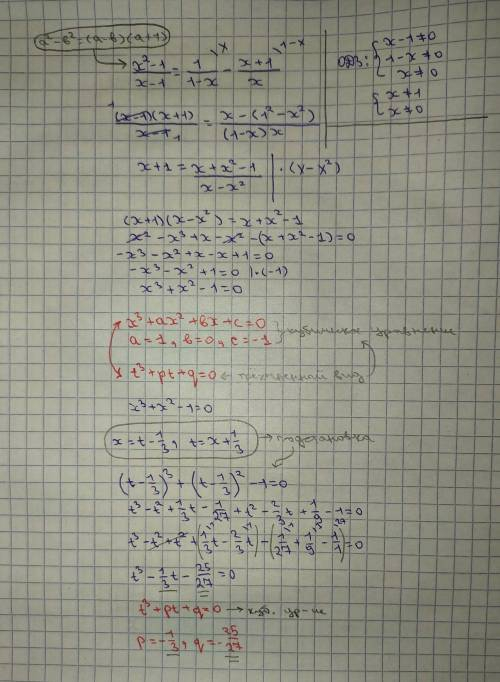 a²-в²=(a-в)(a+1)
(x²-1)/(x-1) = 1/(1-x) \x - (x+1)/x \1-x
ОДЗ: { x-1≠0
1-x≠0
x≠0
{ x≠1
x≠0
1 (x-1)(x+1)/(x-1) 1 = (x-(1²-x²))/((1-x)x)
x+1 = (x+x²-1)/(x-x²) | ·(x-x²)
(x+1)(x-x²)=x+x²-1
x²-x³+x-x²-(x+x²-1)=0
-x³-x²+x-x+1=0
-x³-x²+1=0 |·(-1)
x³+x²-1=0
x³+ax²+вx+c=0
a=1, в=0, c=-1
кубическое уравнение
t³+pt+q=0 ← трехчленный вид
x³+x²-1=0
x=t-1/3, t=x+1/3 → подстановка
(t-1/3)³+(t-1/3)²-1=0
t³-t²+1/3t-1/27+t²-2/3t+1/9-1=0
t³-t²+t²+(1/3t \1-2/3t \1)-(1/27 \1+1/9 \3-1/1 \27)=0
t³-1/3t-25/27=0
t³+pt+q=0 → куб. ур-ие
p=-1/3, q=-25/27